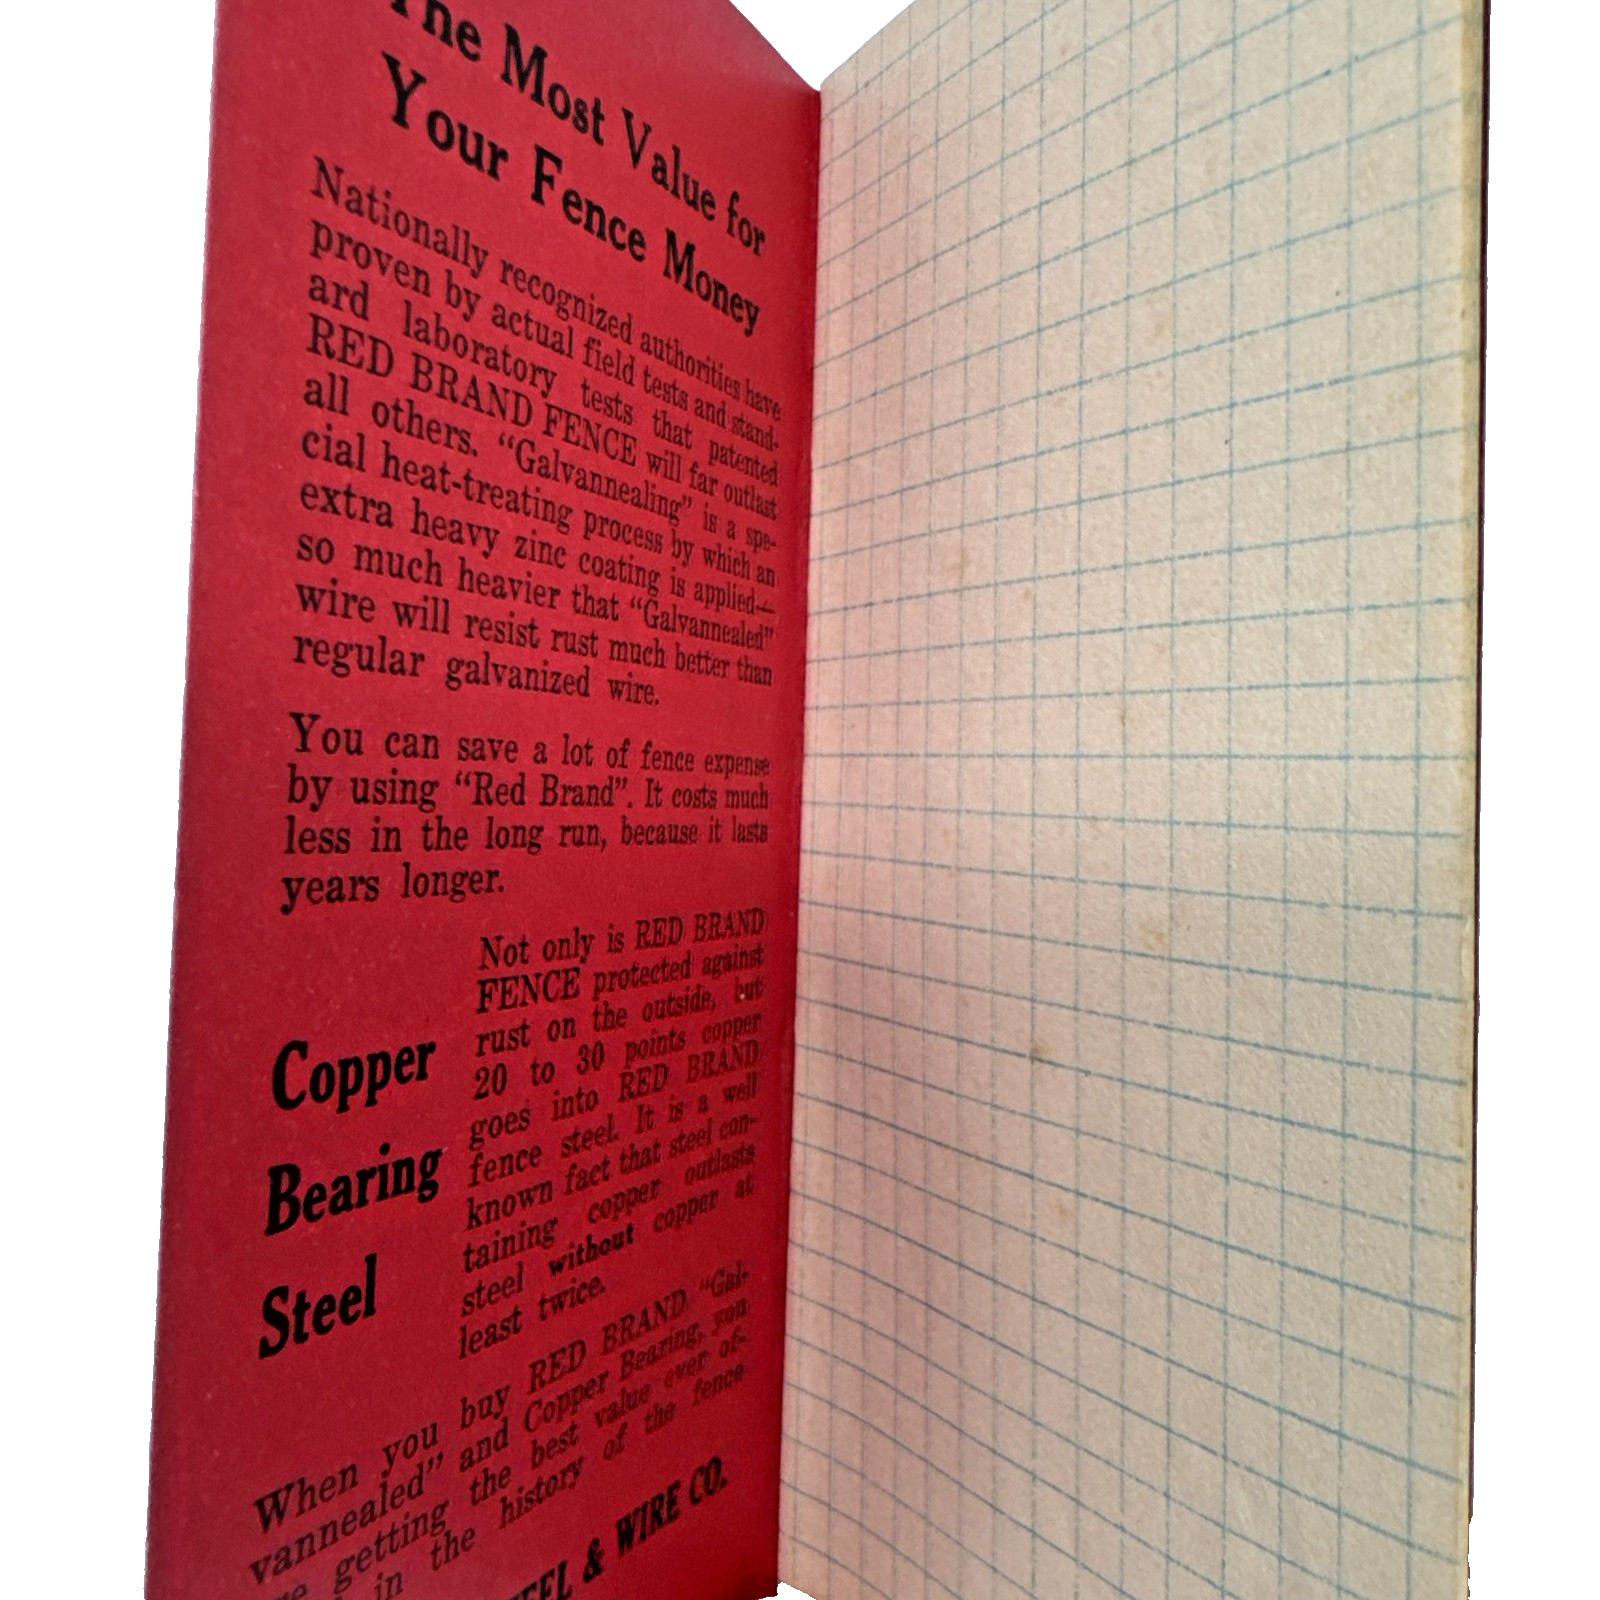 The Most Value for
Your Fence Money
Nationally recognized authorities have
proven by actual field tests and stand-
ard laboratory tests that patented
RED BRAND FENCE will far outlast
all others. “Galvannealing” is a spe-
cial heat-treating process by which an
extra heavy zinc coating is applied—
so much heavier that “Galvannealed”
wire will resist rust much better than
regular galvanized wire.
You can save a lot of fence expense
by using “Red Brand”. It costs much
less in the long run, because it lasts
years longer.
Copper
Bearing
Steel
Not only is RED BRAND
FENCE protected against
rust on the outside, but
20 to 30 points copper
goes into RED BRAND
fence steel. It is a well
known fact that steel con-
taining copper outlasts
steel without copper at
least twice.
When you buy RED BRAND “Gal-
vannealed” and Copper Bearing, you
getting the best value ever of-
in the history of the fence
& WIRE CO.